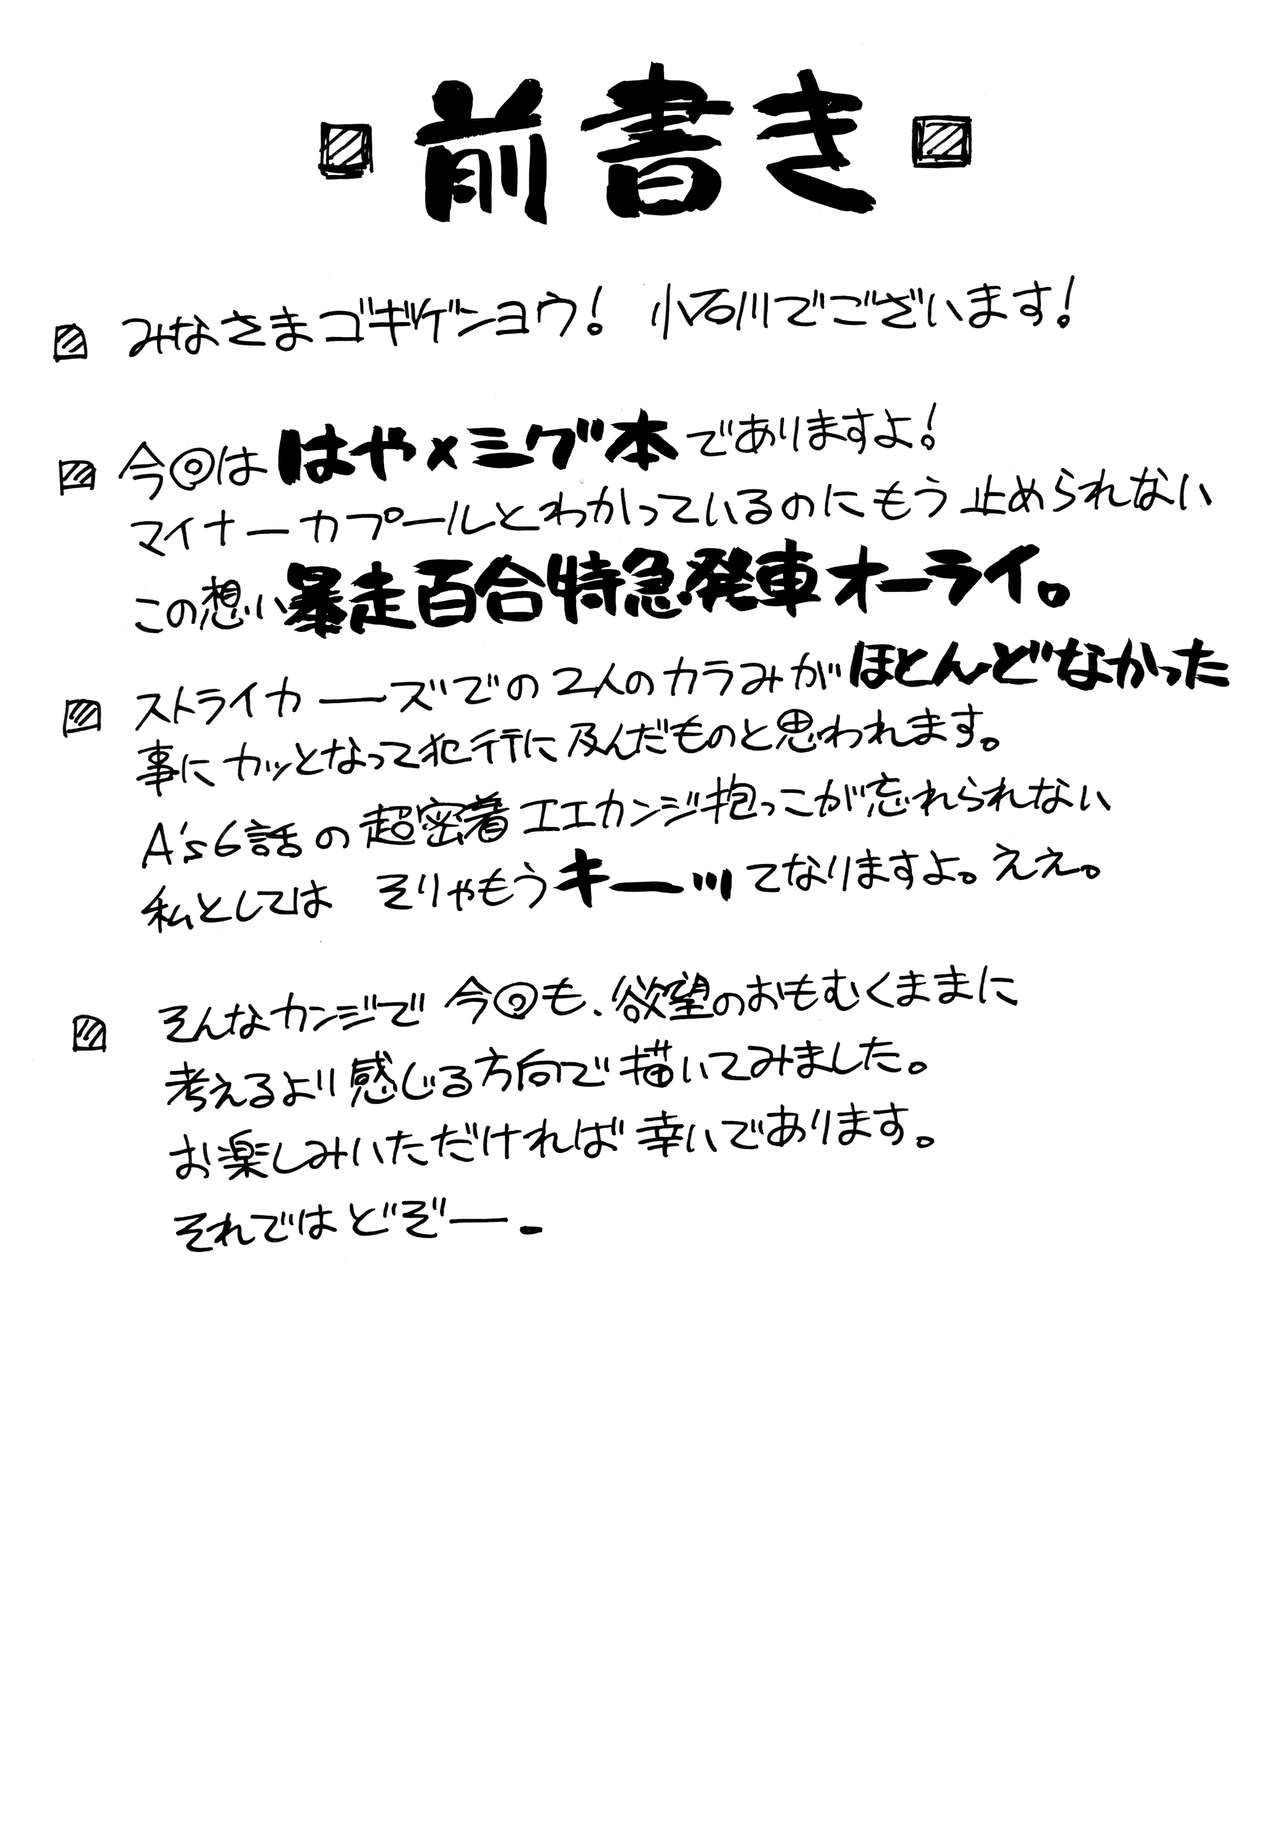 前書き
みなさまゴギゲンョウ! 小石川でございます!
今回ははや×ミグ本でありますよ!
マイナーカプールとわかっているのにもう止められない
この想い暴走百合特急発車オーライ。
ストライカーーズでの2人のカラみがほとんどなかった
事にカッとなって犯行に及んだものと思われます。
A's6話の超密着エエカンジ抱っこが忘れられない
私としては そりゃもうキーッてなりますよ。ええ。
そんなカンジで今回も、欲望のおもむくままに
考えるより感じる方向で描いてみました。
お楽しみいただければ幸いであります。
それではどぞー。